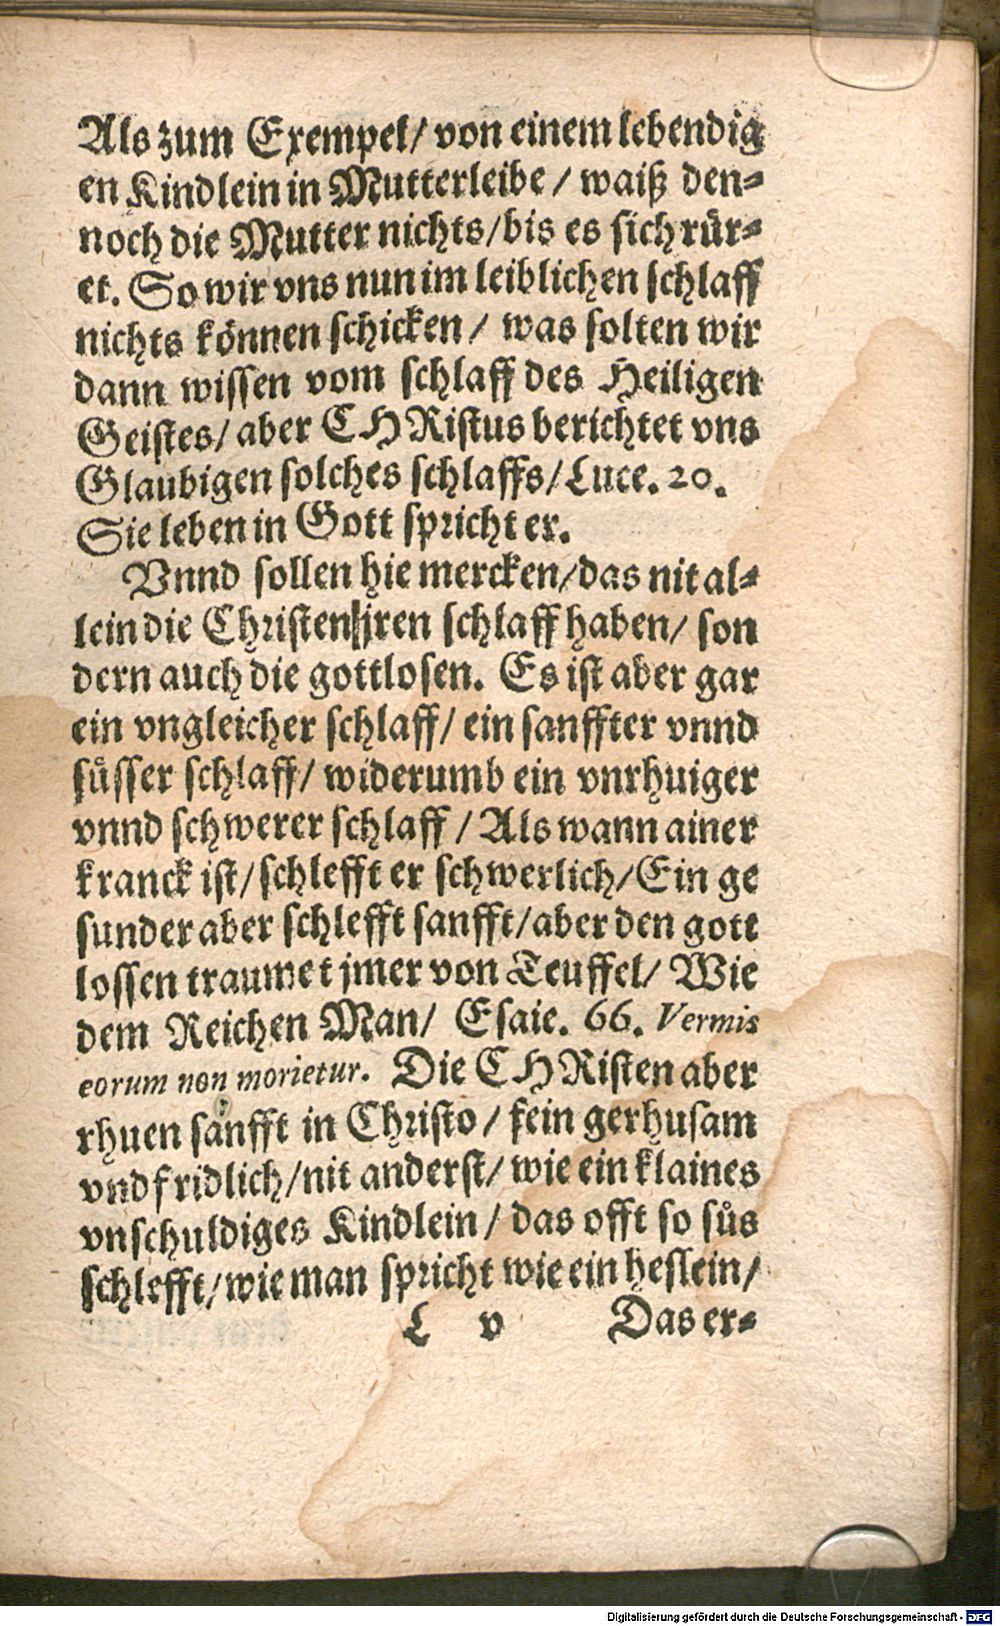 Als zum Exempel/ von einem lebendig
en Kindlein in Mutterleibe / waiß den-
noch die Mutter nichts/bis es sich rür-
et. So wir vns nun im leiblichen schlaff
nichts können schicken / was solten wir
dann wissen vom schlaff des Heiligen
Geistes/ aber CHRistus berichtet vns
Glaubigen solches schlaffs/Luce. 20.
Sie leben in Gott spricht er.
Vnnd sollen hie mercken/das nit al-
lein die Christen jren schlaff haben/ son
dern auch die gottlosen. Es ist aber gar
ein vngleicher schlaff/ ein sanffter vnnd
süsser schlaff/ widerumb ein vnrhuiger
vnnd schwerer schlaff / Als wann ainer
kranck ist/ schlefft er schwerlich/Ein ge
sunder aber schlefft sanfft/aber den gott
lossen traumet jmer von Teuffel/ Wie
dem Reichen Man/ Esaie. 66. Vermis
eorum non morietur. Die CHRisten aber
rhuen sanfft in Christo / fein gerhusam
vnd fridlich/nit anderst/ wie ein klaines
vnschuldiges Kindlein / das offt so sůs
schlefft/wie man spricht wie ein heslein/
L v Das er-
Digitalisierung gefördert durch die Deutsche Forschungsgemeinschaft - DFG